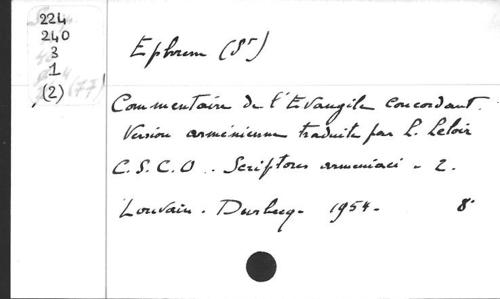 224
240
3
1
(2)
Ephrem (St)
Commentaire de l'Evangile concordant.
Version arménienne traduite par L. Leloir
C.S.C.O.. Scriptores armeniaci - 2.
Louvain. Durbecq. 1954. 8°